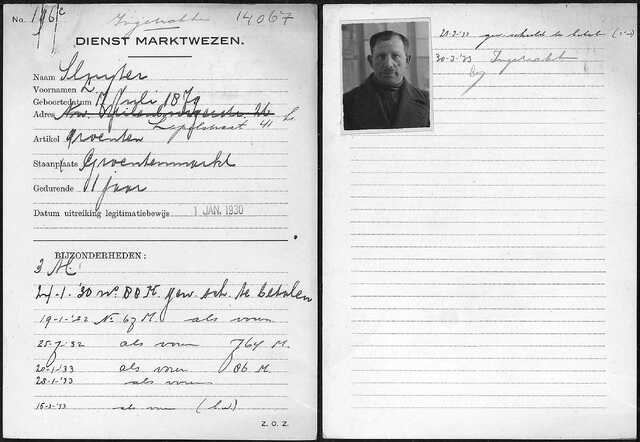 No. 196c Ingetrokken 14067
DIENST MARKTWEZEN.
Naam Sluyter
Voornamen L.
Geboortedatum 17 Juli 1879
Adres Nw. 26
Lepelstraat 41 hs.
Artikel groenten
Staanplaats Groentenmarkt
Gedurende 1 jaar
Datum uitreiking legitimatiebewijs 1 JAN. 1930
BIJZONDERHEDEN:
3 M.
24-1-'30 no. 80 M. gew. sch. te betalen
19-1-'32 No 67 M. als voren
25-7-32 als voren 764 M.
20-1-'33 als voren 86 M.
28-1-'33 als voren
15-3-'33 als voren
Z. O. Z.
te betalen
30-3-'33 Ingetrokken